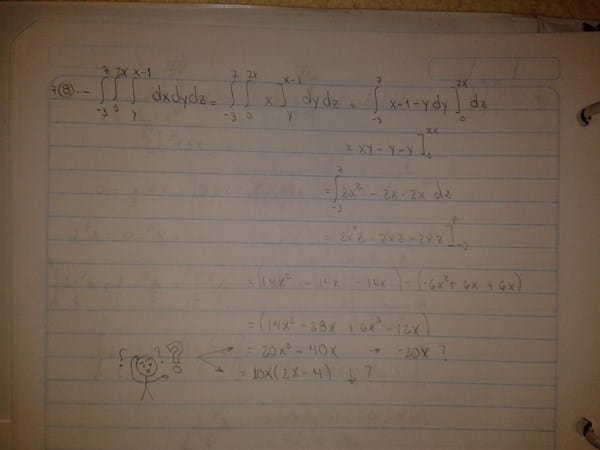 7(8).- ∫₋₃⁷ ∫₀²ˣ ∫ᵧˣ⁻¹ dxdydz = ∫₋₃⁷ ∫₀²ˣ x]ᵧˣ⁻¹ dydz = ∫₋₃⁷ x-1-y dy]₀²ˣ dz
= xy - y - y]₀²ˣ
= ∫₋₃⁷ 2x² - 2x - 2x dz
= 2x²z - 2xz - 2xz]₋₃⁷
= (14x² - 14x - 14x) - (-6x² + 6x + 6x)
= (14x² - 28x + 6x² - 12x)
? ? ? = 20x² - 40x → -20x ?
= 10x(2x-4) ↓ ?